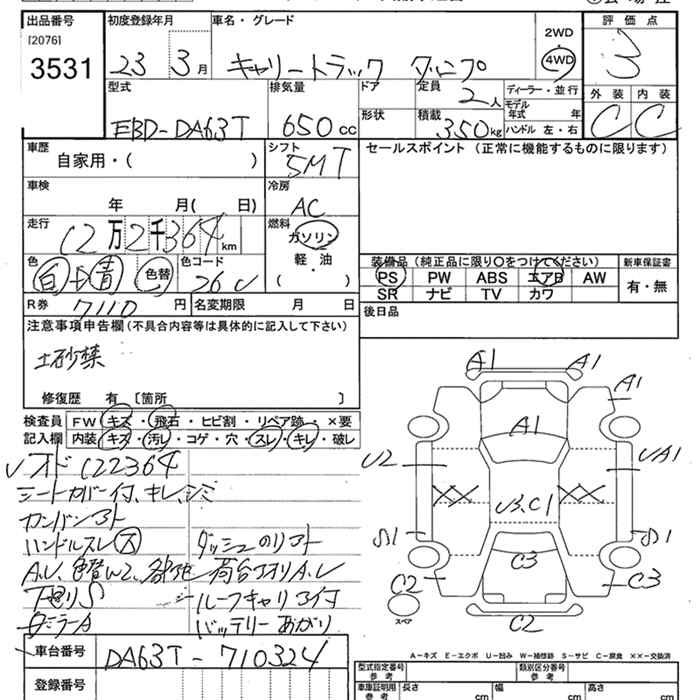 出品番号
[2076]
3531
初度登録年月
23 3月
車名・グレード
キャリートラック ダンプ
2WD
4WD
評価点
3
外装 内装
C C
型式
EBD-DA63T
排気量
650cc
ドア
形状
定員
2人
積載
350kg
ディーラー・並行
モデル年式 年
ハンドル 左・右
車歴
自家用・( )
シフト
5MT
セールスポイント(正常に機能するものに限ります)
車検
年 月( 日)
冷房
AC
走行
12万2千364km
燃料
ガソリン
軽・油
( )
色
白→青 色替
色コード
26U
装備品(純正品に限り○をつけてください)
PS PW ABS エアB AW
SR ナビ TV カワ
新車保証書
有・無
R券 7110円
名変期限 月 日
後日品
注意事項申告欄(不具合内容等は具体的に記入して下さい)
土砂禁
修復歴 有〔箇所 〕
検査員記入欄
FW キズ・飛石・ヒビ割・リペア跡・×要
内装 キズ・汚れ・コゲ・穴・スレ・キレ・破レ
オド 122364
シートカバー付、キレ、シミ
カンバンアト
ハンドルスレ大
ダッシュのリアト
A.U、色替W2、
荷台コオリA.U
下回りS
ルーフキャリア付
ミラーA
バッテリーあがり
A1 A1
A1
A1
U2
UA1
XX
U3.C1
XX
S1
S1
C3
C2
C3
C2
スペア
A−キズ E−エクボ U−凹み W−補修跡 S−サビ C−腐食 ××−交換済
車台番号
DA63T-710324
登録番号
型式指定番号
参考
類別区分番号
参考
車庫証明用
参考
長さ cm
幅 cm
高さ cm